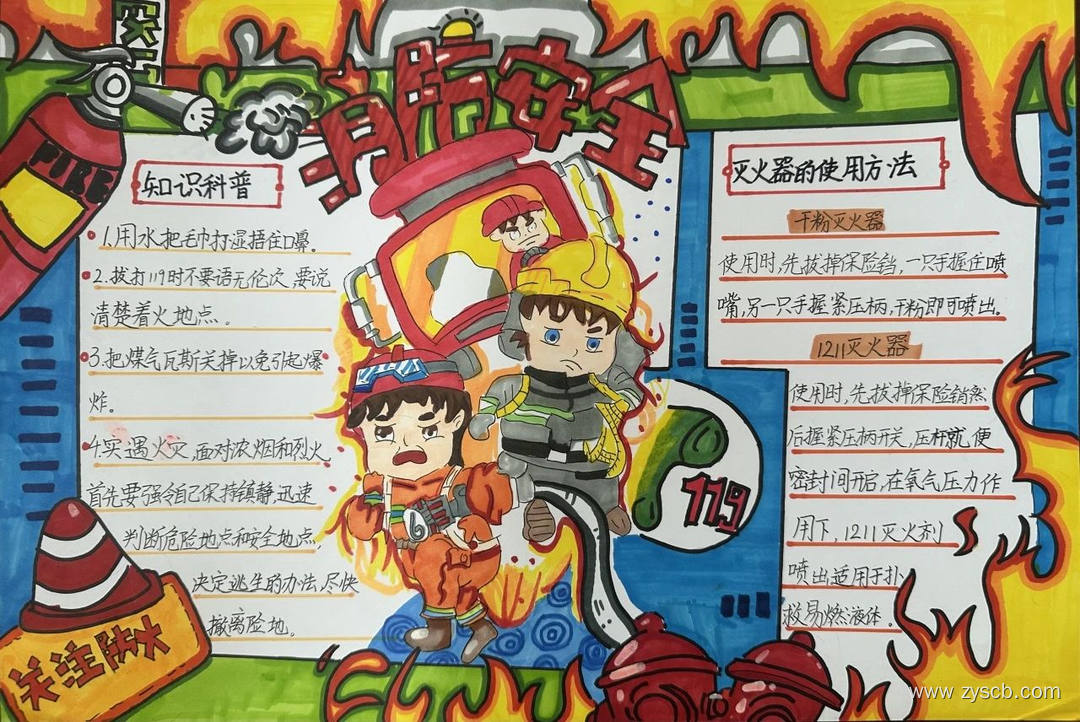 消防安全
FIRE
知识科普
1.用水把毛巾打湿捂住口鼻.
2.拔打119时不要语无伦次,要说
清楚着火地点。
3.把煤气瓦斯关掉以免引起爆
炸。
4.实遇火灾,面对浓烟和烈火
首先要强令自己保持镇静,迅速
判断危险地点和安全地点,
决定逃生的办法,尽快
撤离险地。
关注防火
6
119
灭火器的使用方法
干粉灭火器
使用时,先拔掉保险销,一只手握住喷
嘴,另一只手握紧压柄,干粉即可喷出.
1211灭火器
使用时,先拔掉保险销,然
后握紧压柄开关,压杆就使
密封间开启,在氧气压力作
用下,1211灭火剂
喷出适用于扑
救易燃液体.
www.zyscb.com